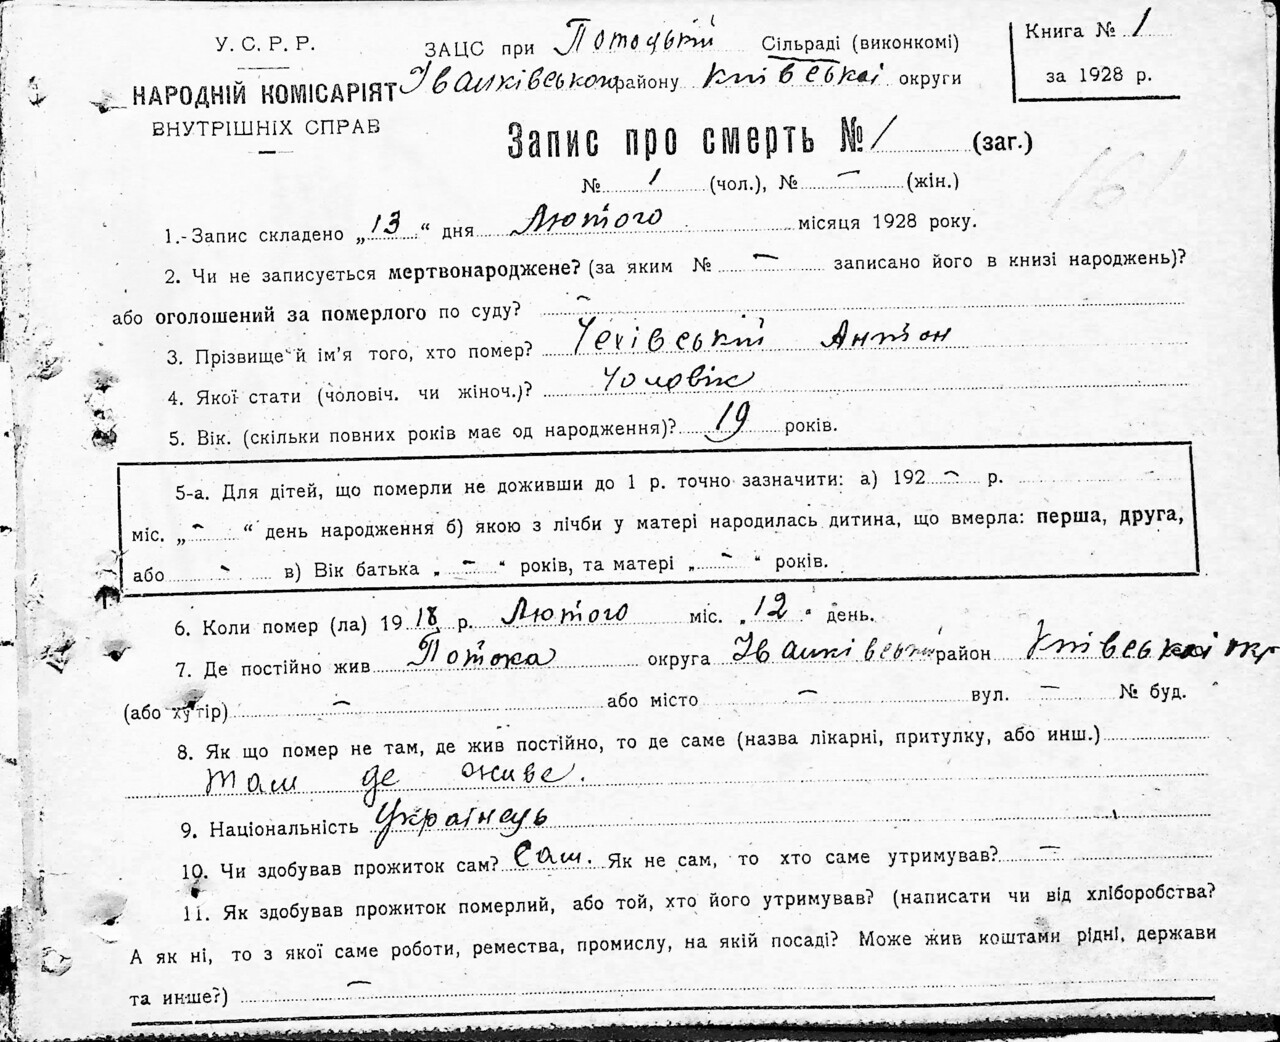 У. С. Р. Р.
НАРОДНІЙ КОМІСАРІЯТ
ВНУТРІШНІХ СПРАВ
ЗАЦС при Потоцькій Сільраді (виконкомі)
Іванківського району Київської округи
Книга № 1
за 1928 р.
Запис про смерть № 1 (заг.)
№ 1 (чол.), № – (жін.)
161
1.- Запис складено „13“ дня Лютого місяця 1928 року.
2. Чи не записується мертвонароджене? (за яким № – записано його в книзі народжень)?
або оголошений за померлого по суду? –
3. Прізвище й ім'я того, хто помер? Чехівський Антон
4. Якої стати (чоловіч. чи жіноч.)? Чоловік
5. Вік. (скільки повних років має од народження)? 19 років.
5-а. Для дітей, що померли не доживши до 1 р. точно зазначити: а) 192 – р.
міс. „ – “ день народження б) якою з лічби у матері народилась дитина, що вмерла: перша, друга,
або – в) Вік батька „ – “ років, та матері „ – “ років.
6. Коли помер (ла) 1918 р. Лютого міс. „12“ день.
7. Де постійно жив Потока округа Іванківський район Київської окр
(або хутір) – або місто – вул. – № буд.
8. Як що помер не там, де жив постійно, то де саме (назва лікарні, притулку, або инш.)
там де живе.
9. Національність Українець
10. Чи здобував прожиток сам? Сам. Як не сам, то хто саме утримував? –
11. Як здобував прожиток померлий, або той, хто його утримував? (написати чи від хліборобства?
А як ні, то з якої саме роботи, ремества, промислу, на якій посаді? Може жив коштами рідні, держави
та инше?) –